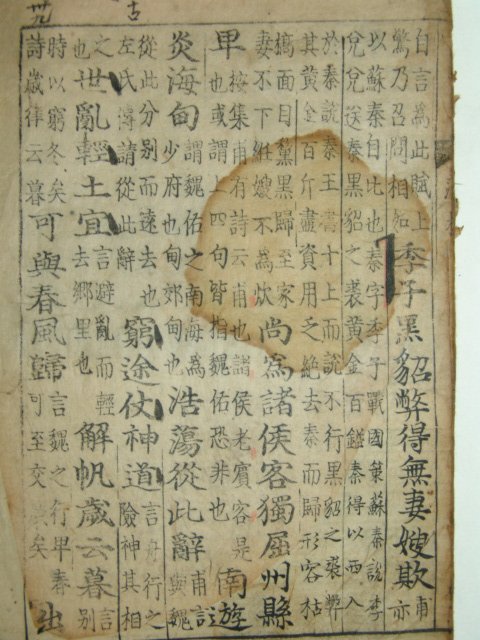 自言爲此賦上
驚乃召問相如
季子黑貂弊得無妻嫂欺
甫
亦
以蘇秦自比也秦字季子戰國策蘇秦說李
兊兊送秦黑貂之裘黃金百鎰秦得以西入
於秦說秦王書十上而說不行黑貂之裘弊
其黃金百斤盡資用乏絶去秦而歸形容枯
槁面目黧黑歸至家
妻不下絍嫂不爲炊
尚爲諸侯客獨屈州縣
卑
按集甫有詩云甫也諸侯老賓客是
也或謂上四句皆指魏佑恐非也
南遊
炎海甸
謂魏佑之南海爲
少府也甸郊甸也
浩蕩從此辭
甫言
與魏
從此分别而逺去也
左氏傳請從此辭
窮途仗神道
言舟行之
險神其相
之
世亂輕土宜
言避亂而輕
去鄉里也
解帆歲云暮
言
别
時以窮冬矣
詩歲律云暮
可與春風歸
言魏之行畢秦
可至交矣
出
古